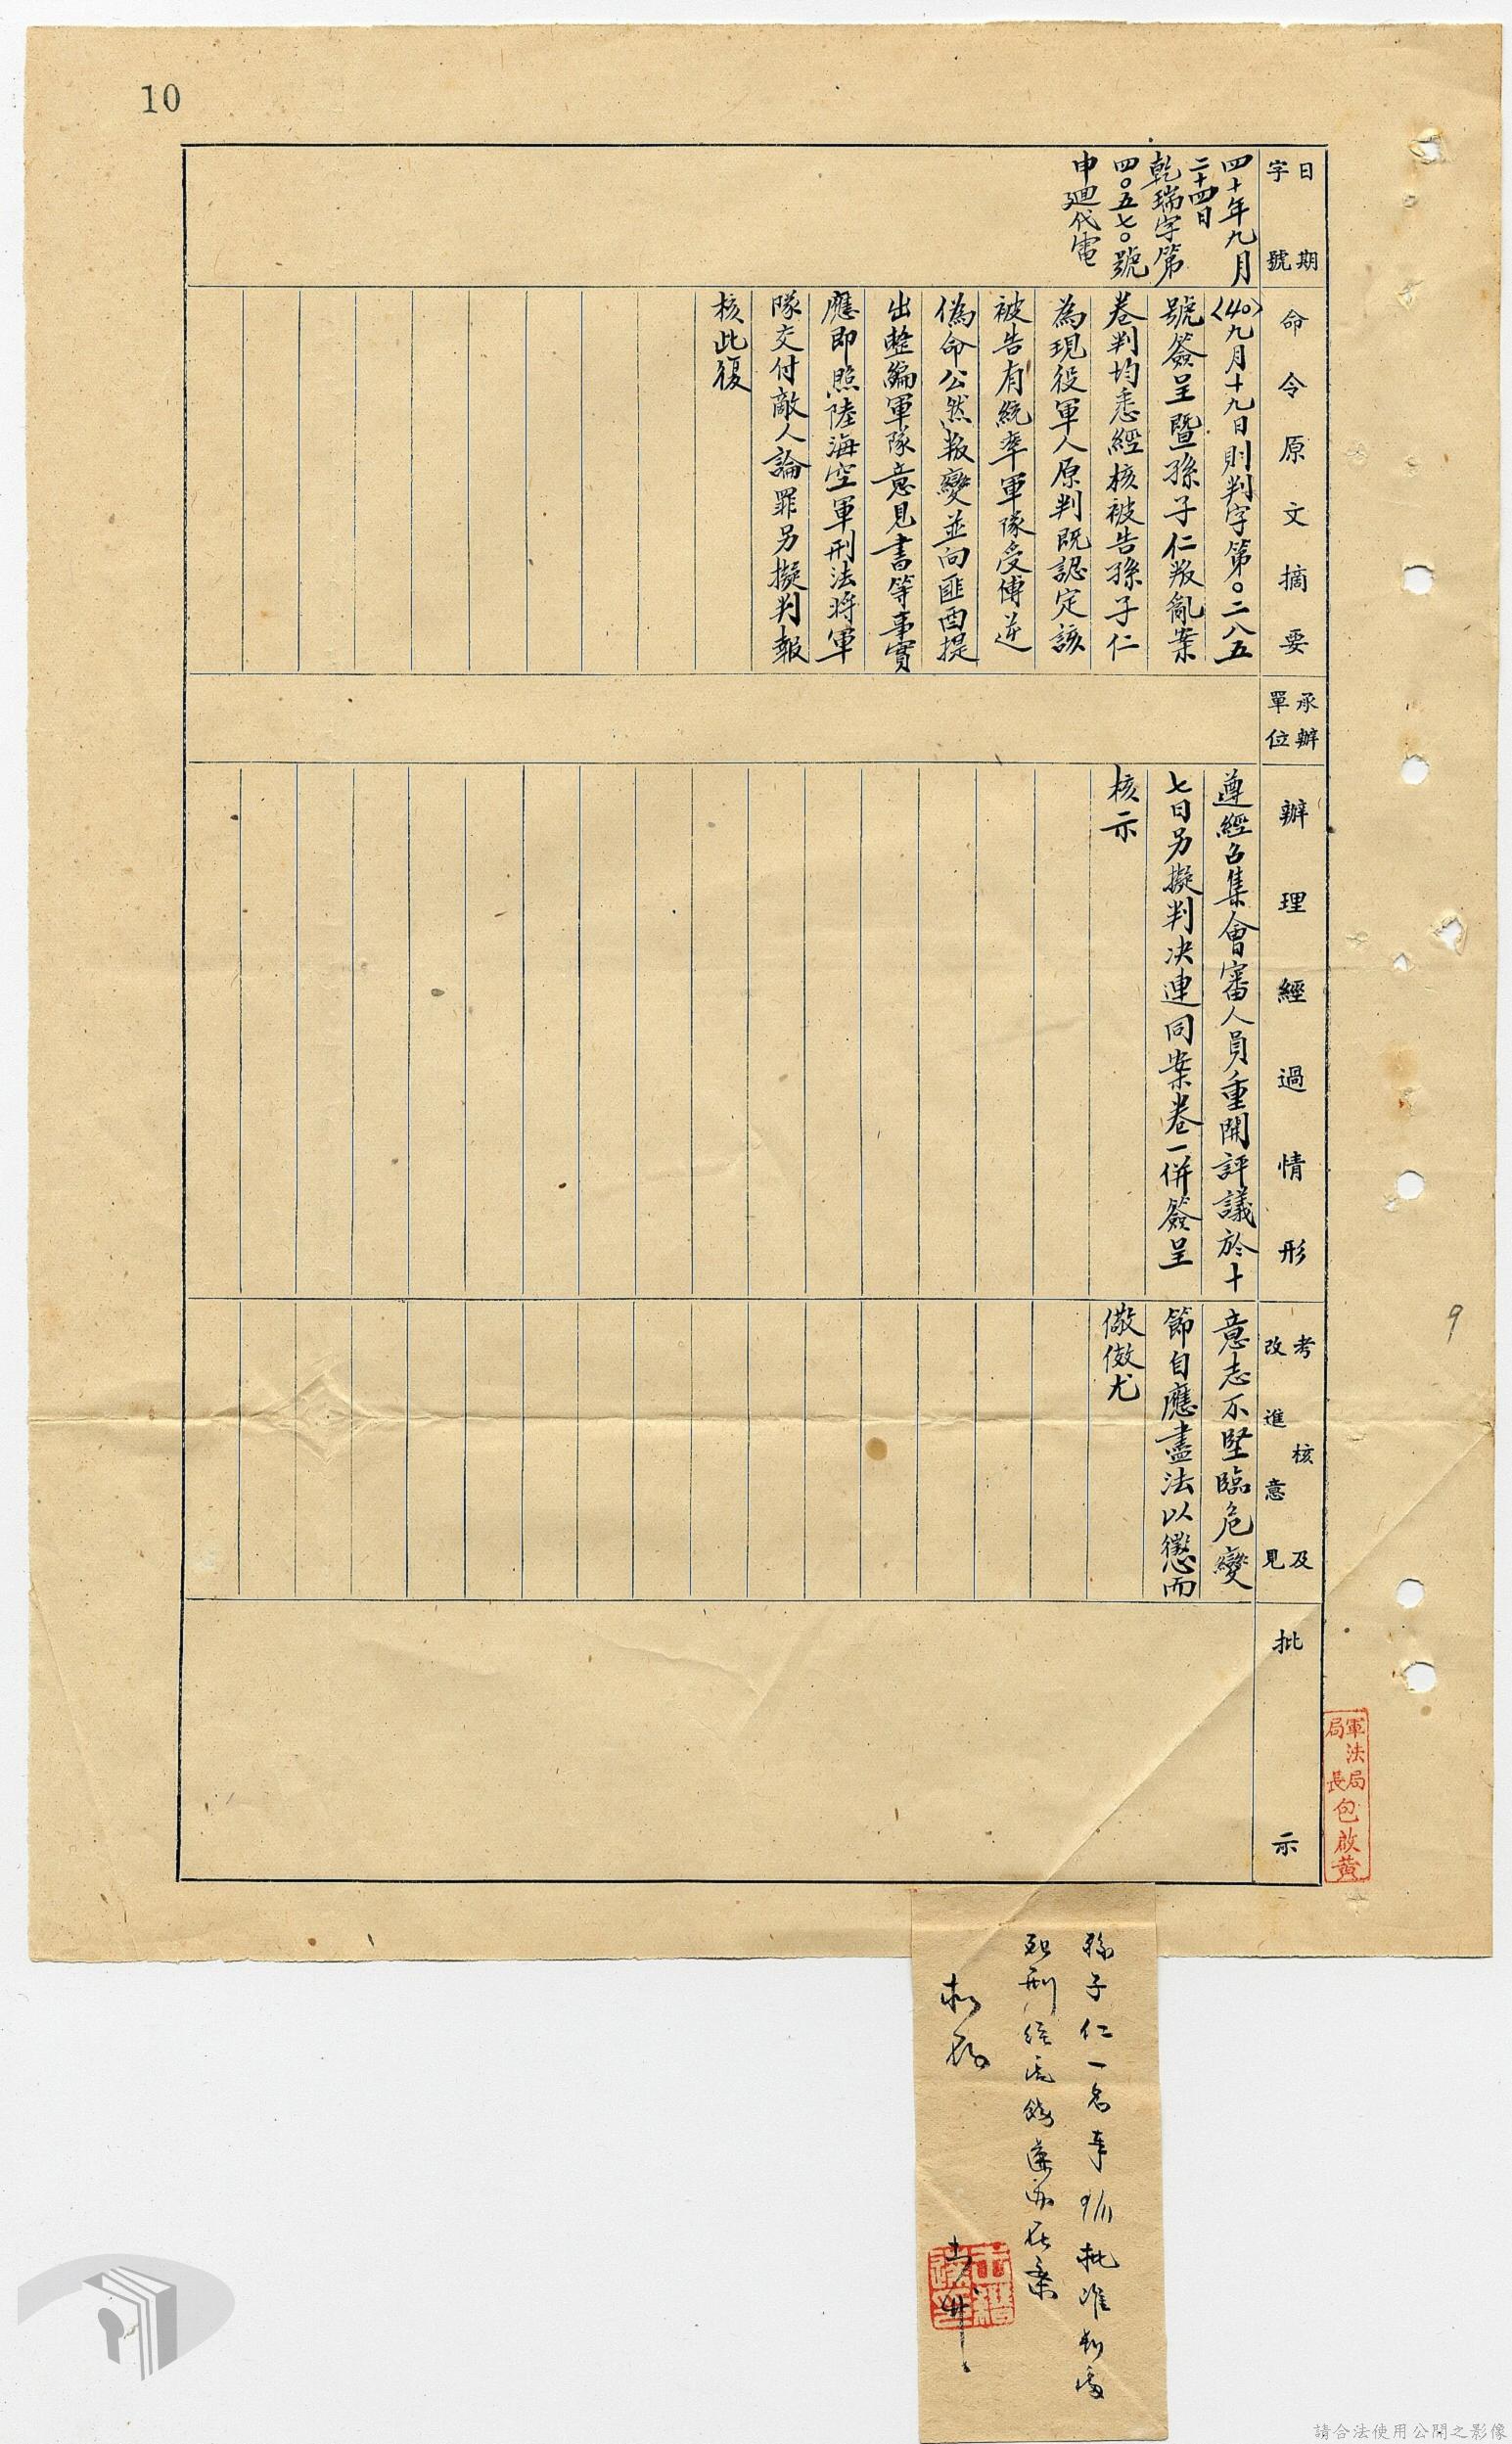 10
日期
字號
四十年九月
二十四日
乾瑞字第
四〇五七〇號
申迴代電
命令原文摘要
(40)九月十九日則判字第〇二八五
號簽呈暨孫子仁叛亂案
卷判均悉經核被告孫子仁
為現役軍人原判既認定該
被告有統率軍隊受傅逆
偽命公然叛變並向匪酋提
出整編軍隊意見書等事實
應即照陸海空軍刑法將軍
隊交付敵人論罪另擬判報
核此復
承辦
單位
辦理經過情形
遵經召集會審人員重開評議於十
七日另擬判決連同案卷一併簽呈
核示
考核及
改進意見
意志不堅臨危變
節自應盡法以懲而
儆傚尤
批示
9
軍法局
局長包啟黃
孫子仁一名奉批准判處
死刑經飭遵辦在案
請合法使用公開之影像